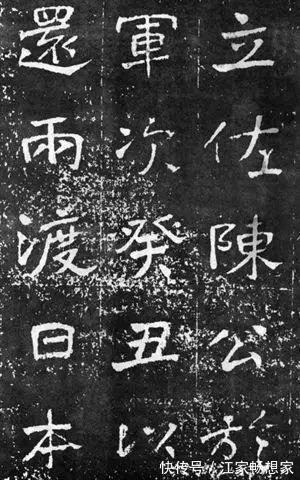 立佐陳公於
軍次癸丑以
還兩渡日本
快传号/江家畅想家